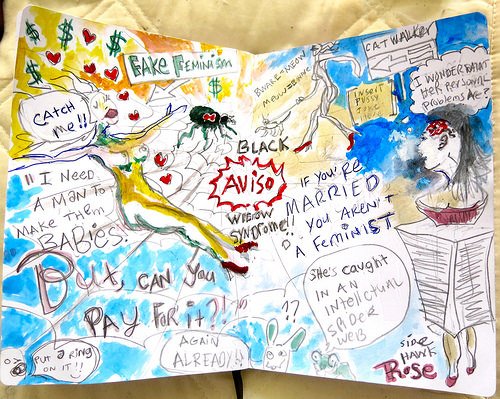 $
$
$
$
$
$
FAKE FEMINISM
CATCH
ME!!
"I NEED
A MAN TO
MAKE THEM
BABIES!"
BUT, CAN YOU
PAY FOR IT?!!
PUT A RING
ON IT!!
AGAIN
ALREADY!!
BLACK
AVISO
WIDOW
SYNDROME!!
CATWALKER
INSERT
PUSSY
JOKE
HERE
I WONDER WHAT
HER PERSONAL
PROBLEMS ARE?
IF YOU'RE
MARRIED
YOU AREN'T
A FEMINIST
SHE'S CAUGHT
IN AN
INTELLECTUAL
SPIDER
WEB
!?
SIDE
HAWK
ROSE